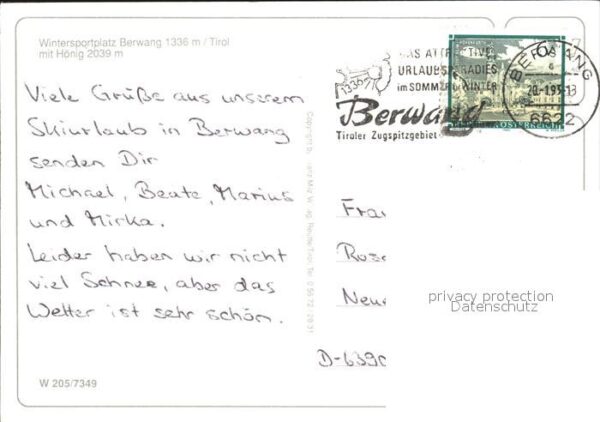 Wintersportplatz Berwang 1336 m / Tirol
mit Hönig 2039 m
Viele Grüße aus unserem
Skiurlaub in Berwang
senden Dir
Michael, Beate, Marius
und Mirka.
Leider haben wir nicht
viel Schnee, aber das
Wetter ist sehr schön.
W 205/7349
DAS ATTRAKTIVE
URLAUBSPARADIES
im SOMMER u WINTER
1336m
Berwang
Tiroler Zugspitzgebiet
BERWANG
20.-1.95-13
6622
7
REPUBLIK ÖSTERREICH
Copyright
Reutte/Tirol Tel
Frau
Rose
Neue
D-6390
privacy protection
Datenschutz